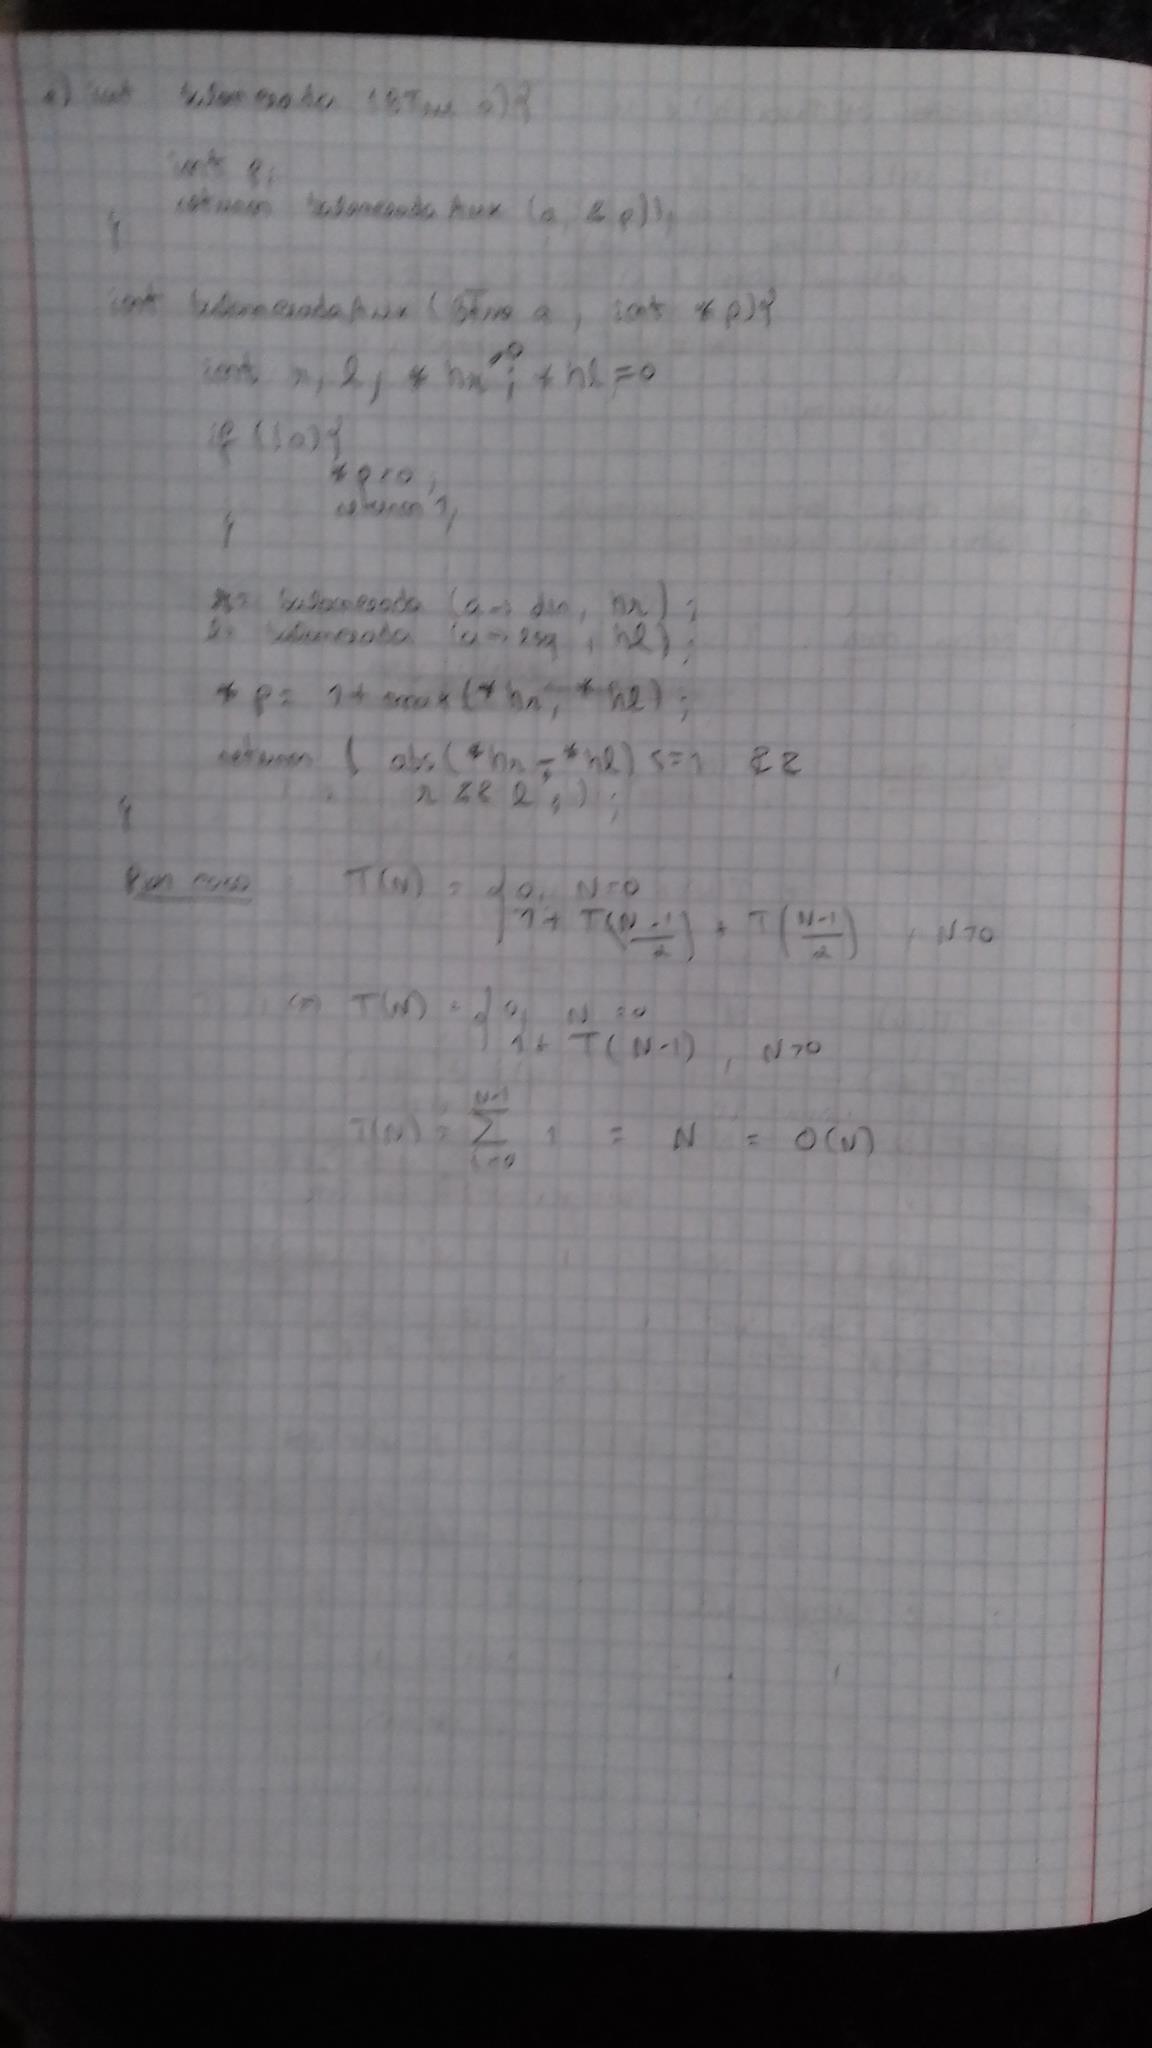 a) int balanceada (BTree a){
int p;
return balanceadaAux (a, & p));
}
int balanceadaAux (BTree a, int * p){
int r, l, * hr =0; * hl =0
if (!a){
*p=0;
return 1;
}
r= balanceada (a-> dir, hr);
l= balanceada (a-> esq, hl);
* p= 1+ max(*hr, *hl);
return ( abs(*hr - *hl) <=1 &&
r && l );
}
T(N) = { 0, N=0
1+ T(N-1/2) + T(N-1/2), N>0
(=) T(N) = { 0, N=0
1+ T(N-1), N>0
T(N) = N-1 Σ i=0 1 = N = O(N)